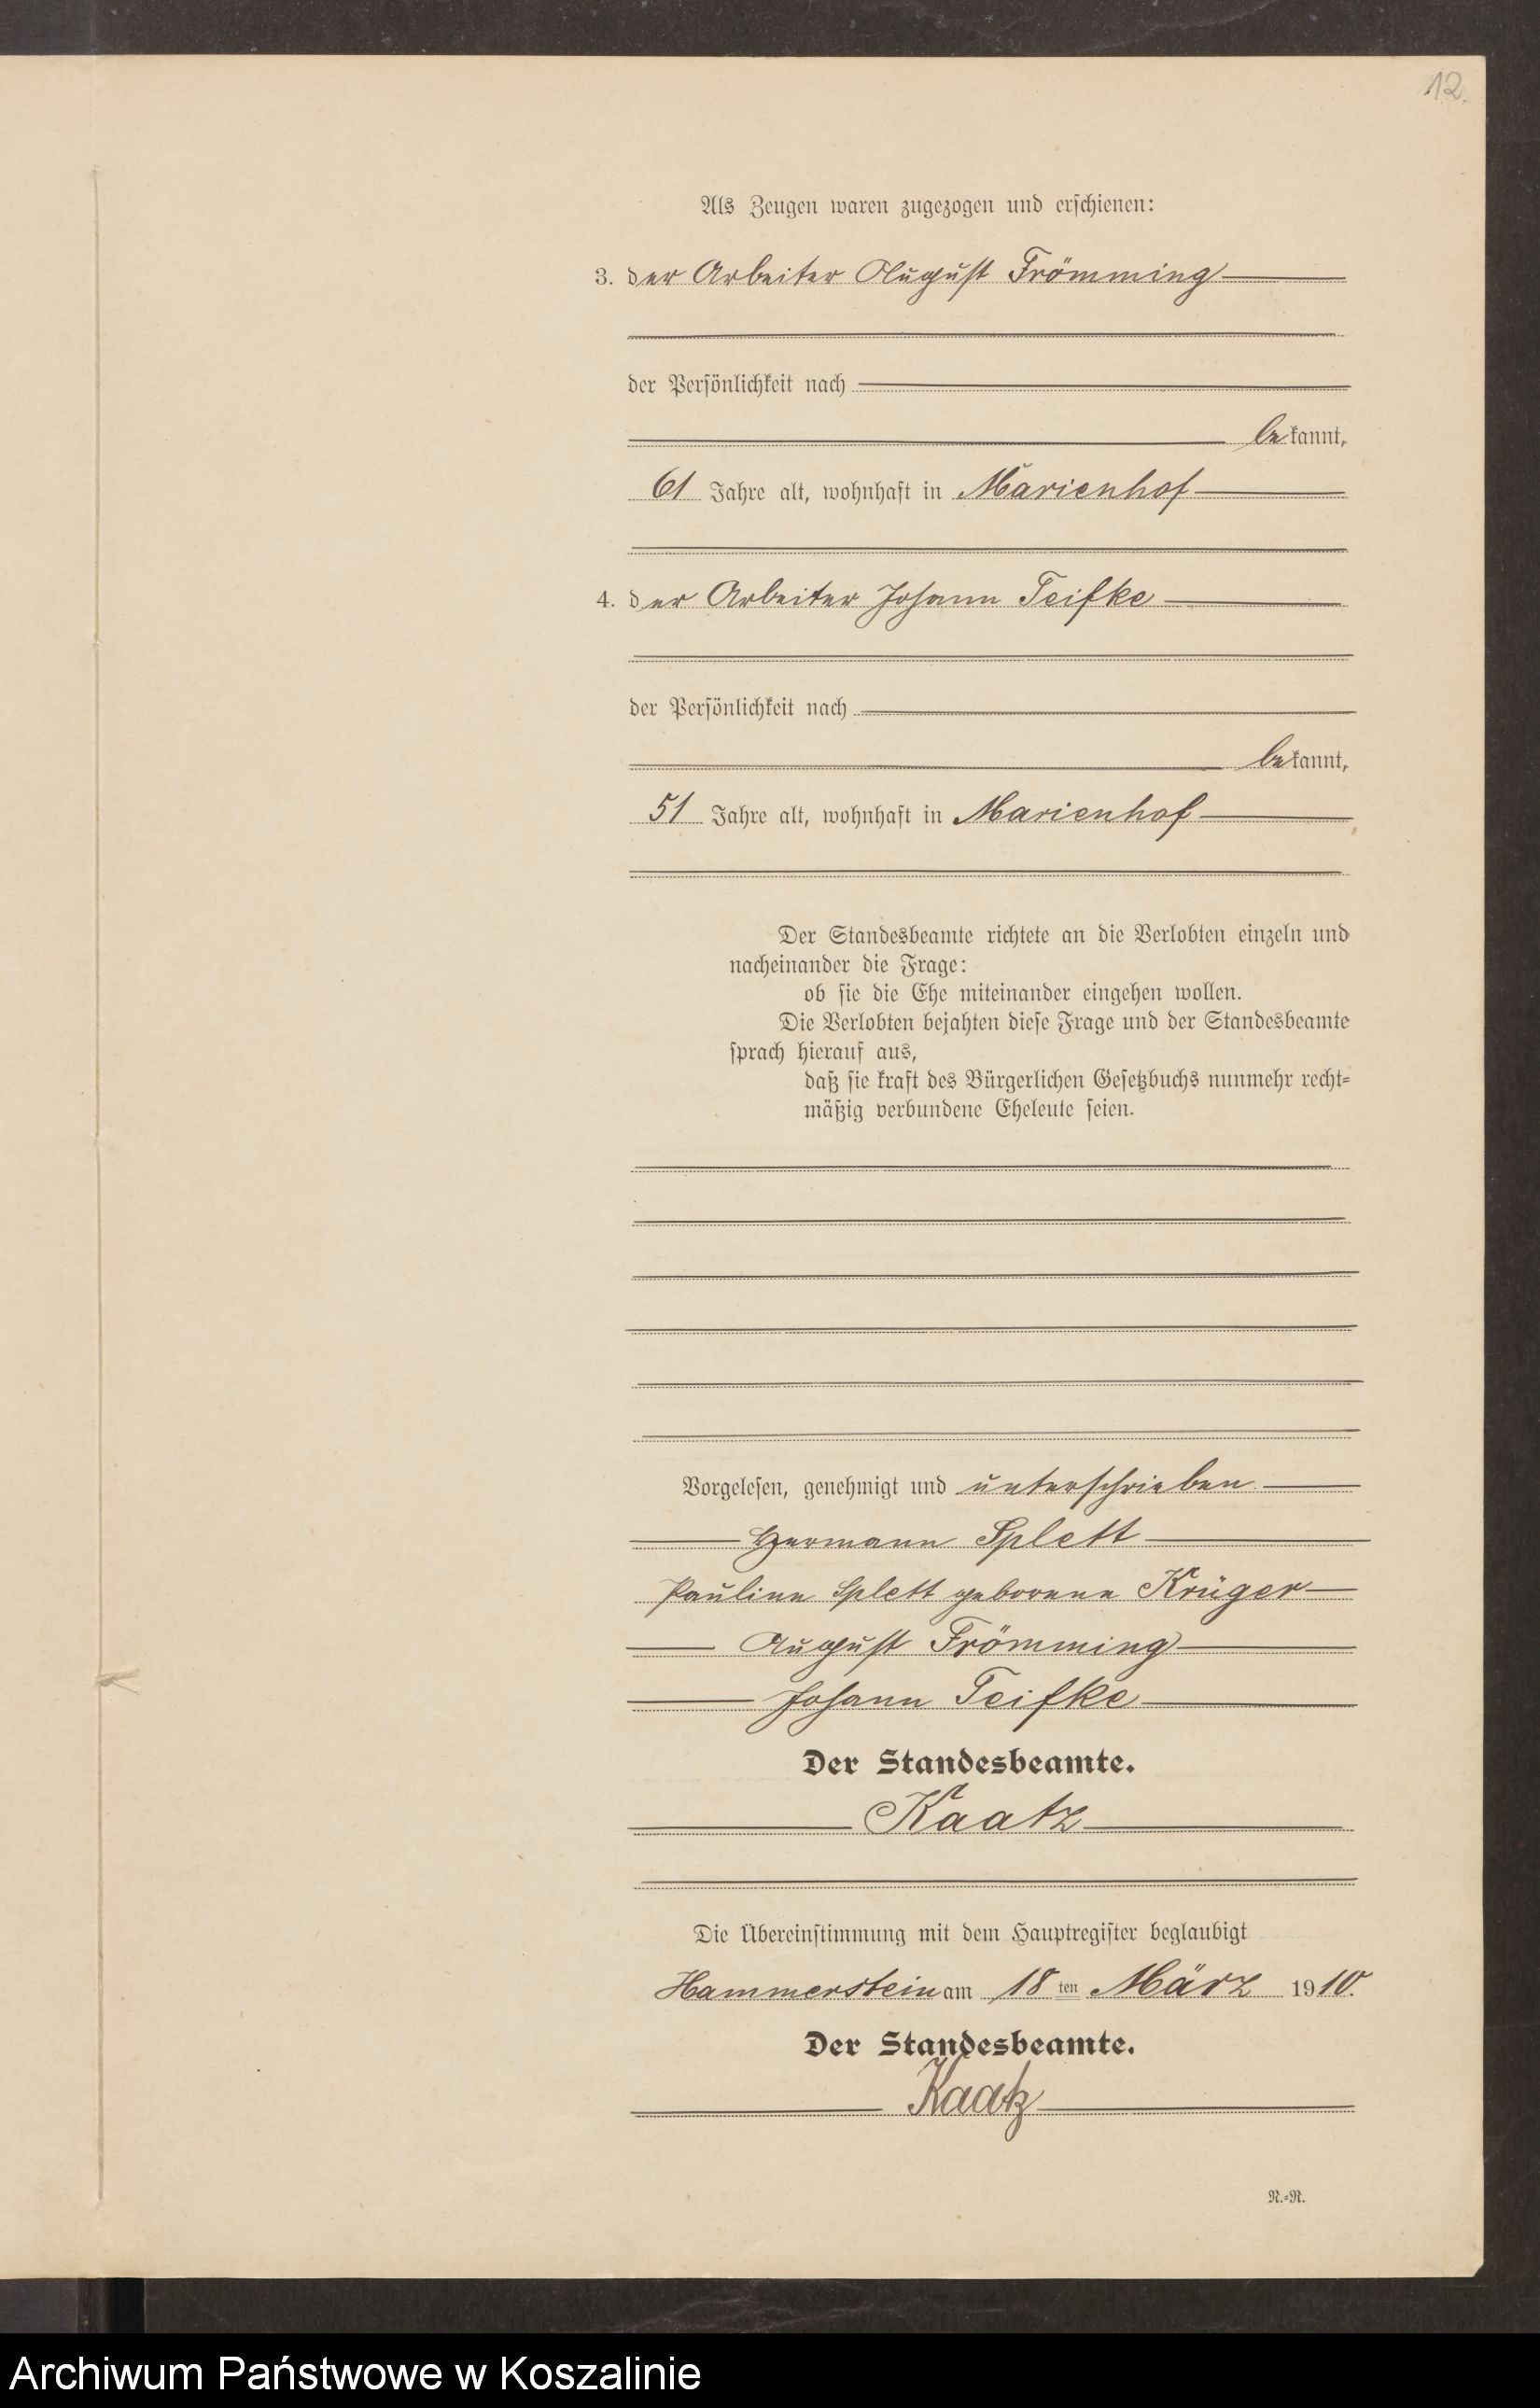 12.
Als Zeugen waren zugezogen und erschienen:
3. der Arbeiter August Frömming
der Persönlichkeit nach
bekannt,
61 Jahre alt, wohnhaft in Marienhof
4. der Arbeiter Johann Teifke
der Persönlichkeit nach
bekannt,
51 Jahre alt, wohnhaft in Marienhof
Der Standesbeamte richtete an die Verlobten einzeln und
nacheinander die Frage:
ob sie die Ehe miteinander eingehen wollen.
Die Verlobten bejahten diese Frage und der Standesbeamte
sprach hierauf aus,
daß sie kraft des Bürgerlichen Gesetzbuchs nunmehr recht-
mäßig verbundene Eheleute seien.
Vorgelesen, genehmigt und unterschrieben
Hermann Splett
Pauline Splett geborene Krüger
August Frömming
Johann Teifke
Der Standesbeamte.
Kaatz
Die Übereinstimmung mit dem Hauptregister beglaubigt
Hammerstein am 18 ten März 1910.
Der Standesbeamte.
Kaatz
R.-R.
Archiwum Państwowe w Koszalinie